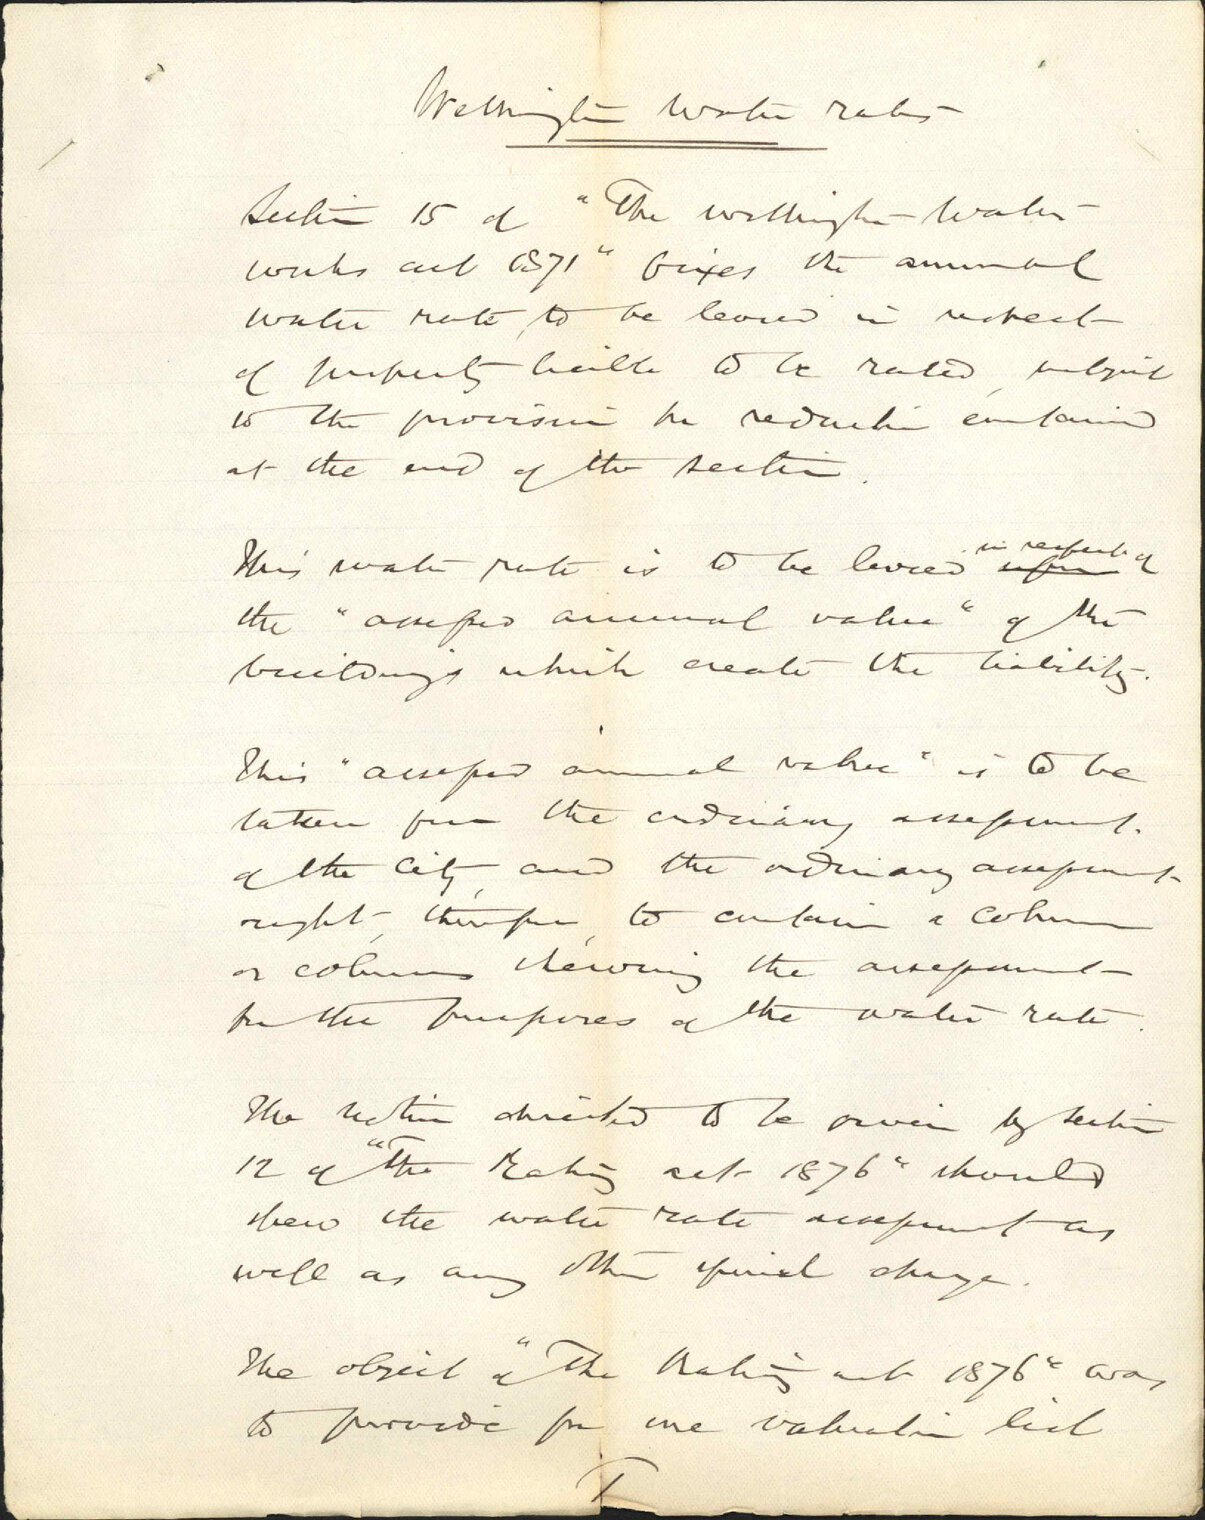 Wellington Water rates
Section 15 of "The Wellington Water
works act 1871" fixes the annual
water rate, to be levied in respect
of property liable to be rated, subject
to the provision for reduction contained
at the end of the section.
This water rate is to be levied in respect of upon
the "assessed annual value" of the
buildings which create the liability.
This "assessed annual value" is to be
taken from the ordinary assessment.
of the City, and the ordinary assessment
ought, therefore, to contain a column
or columns shewing the assessment
for the purposes of the water rate.
The notice directed to be given by section
12 of "The Rating act 1876" should
shew the water rate assessment as
well as any other special charge.
The object of "The Rating act 1876" was
to provide for one valuation list